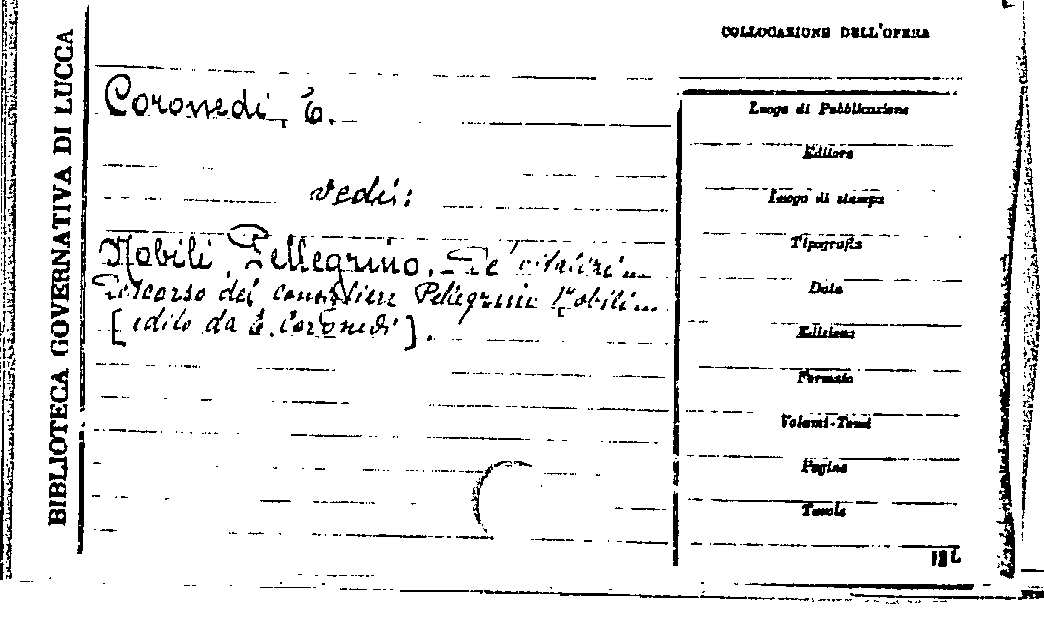 BIBLIOTECA GOVERNATIVA DI LUCCA
COLLOCAZIONE DELL'OPERA
Coronedi, E.
vedi:
Nobili Pellegrino. De' vitalizi ...
Discorso del consigliere Pellegrino Nobili ...
[edito da E. Coronedi].
Luogo di Pubblicazione
Editore
Luogo di stampa
Tipografia
Data
Edizione
Formato
Volumi-Tomi
Pagine
Tavole